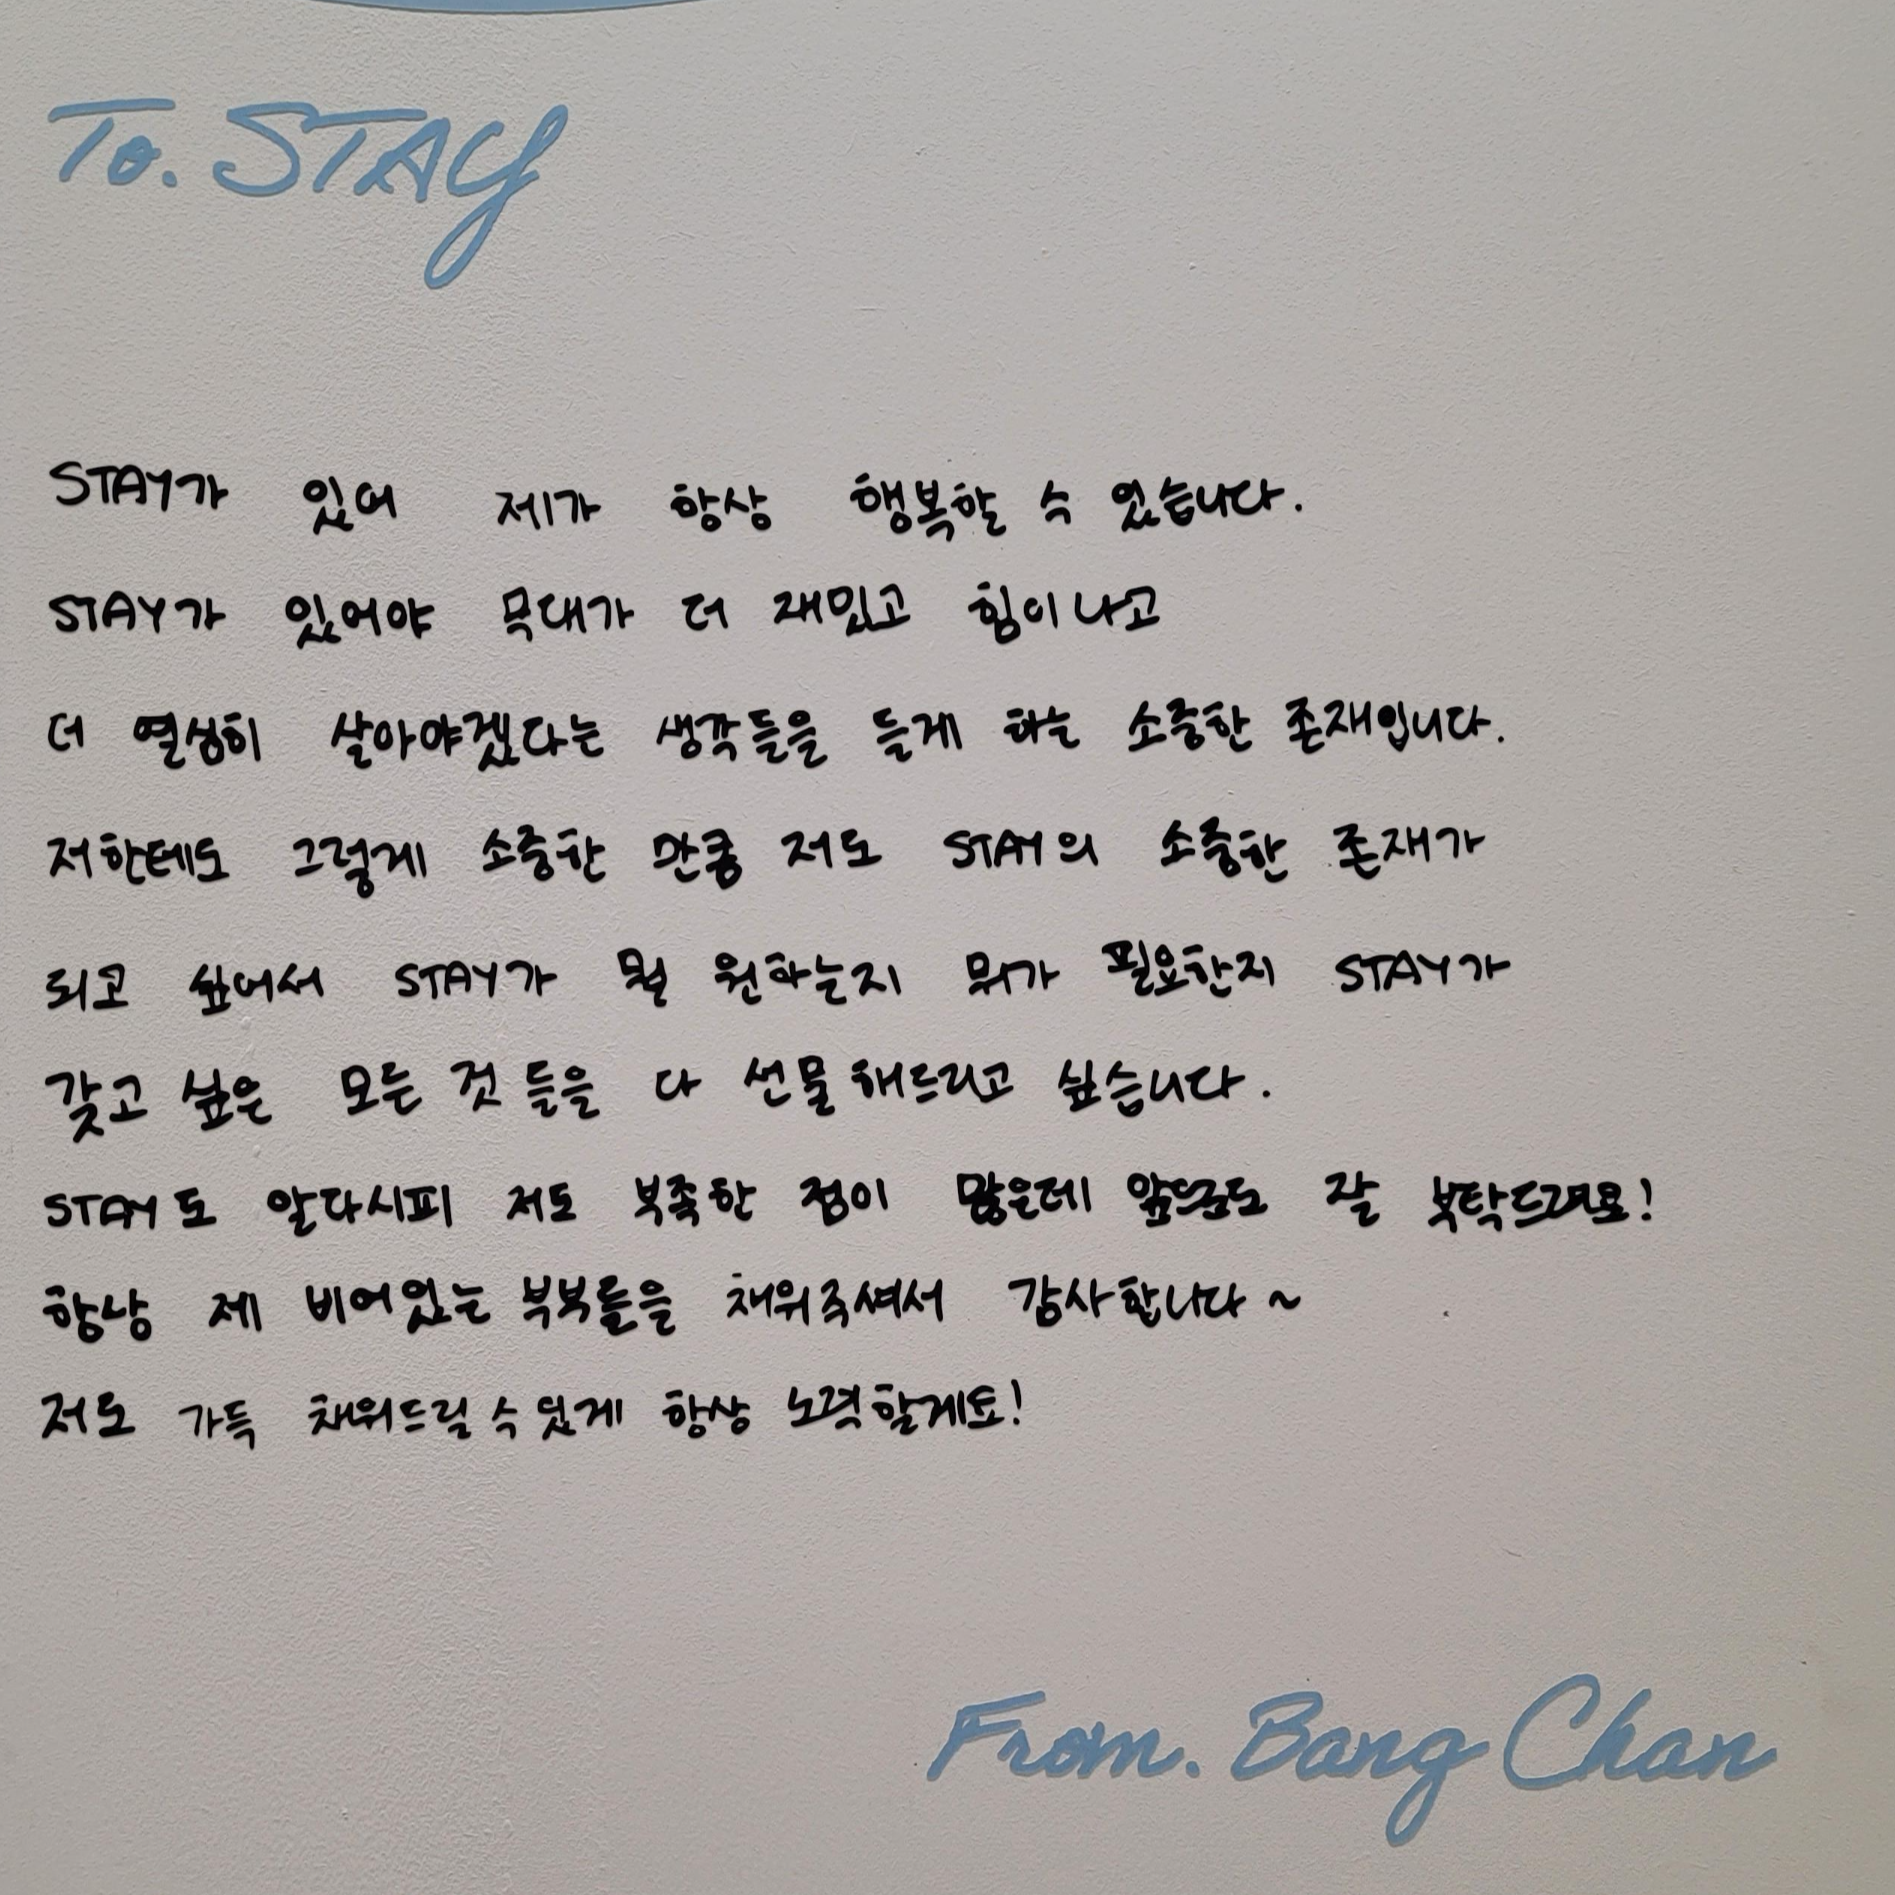 To. STAY
STAY가 있어 제가 항상 행복할 수 있습니다.
STAY가 있어야 무대가 더 재밌고 힘이 나고
더 열심히 살아야겠다는 생각들을 들게 하는 소중한 존재입니다.
저한테도 그렇게 소중한 만큼 저도 STAY의 소중한 존재가
되고 싶어서 STAY가 뭘 원하는지 뭐가 필요한지 STAY가
갖고 싶은 모든 것들을 다 선물해드리고 싶습니다.
STAY도 알다시피 저도 부족한 점이 많은데 앞으로도 잘 부탁드려요!
항상 제 비어있는 부분들을 채워주셔서 감사합니다~
저도 가득 채워드릴 수 있게 항상 노력할게요!
From. Bang Chan